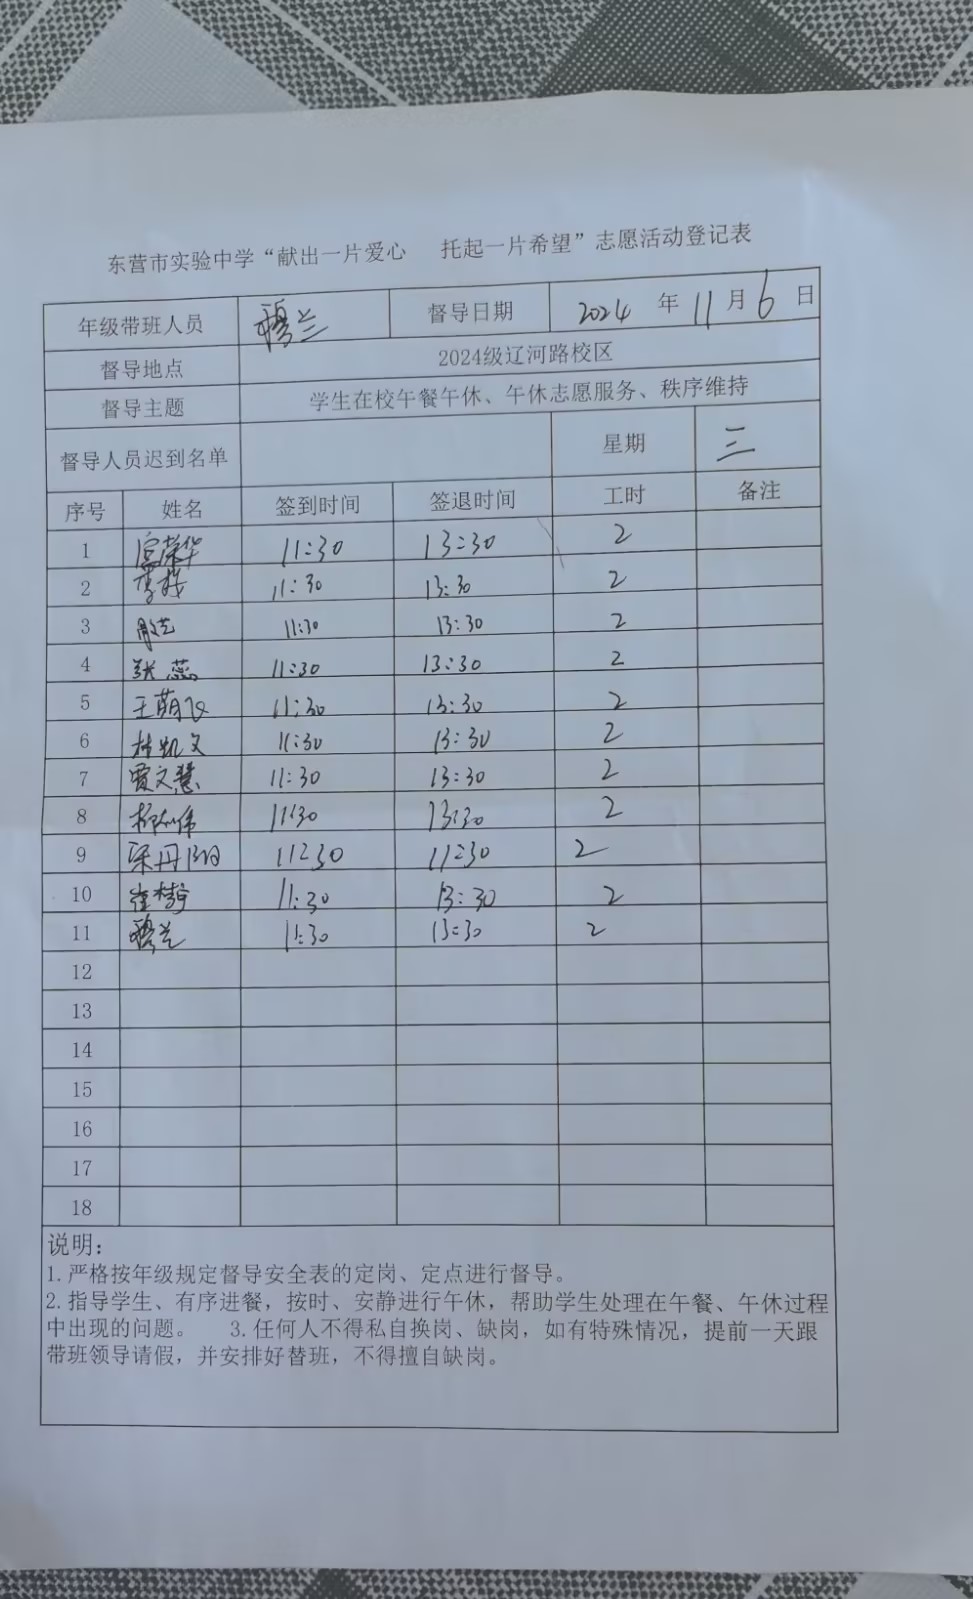 东营市实验中学“献出一片爱心 托起一片希望”志愿活动登记表
年级带班人员 穆兰 督导日期 2024 年 11 月 6 日
督导地点 2024级辽河路校区
督导主题 学生在校午餐午休、午休志愿服务、秩序维持
督导人员迟到名单 星期 三
序号 姓名 签到时间 签退时间 工时 备注
1 荣华 11:30 13:30 2
2 李 11:30 13:30 2
3 11:30 13:30 2
4 张蕊 11:30 13:30 2
5 王萌飞 11:30 13:30 2
6 杜凯文 11:30 13:30 2
7 贾文慧 11:30 13:30 2
8 伟 11:30 13:30 2
9 丹阳 11:30 11:30 2
10 崔 11:30 13:30 2
11 穆兰 11:30 13:30 2
12
13
14
15
16
17
18
说明：
1.严格按年级规定督导安全表的定岗、定点进行督导。
2.指导学生、有序进餐，按时、安静进行午休，帮助学生处理在午餐、午休过程
中出现的问题。 3.任何人不得私自换岗、缺岗，如有特殊情况，提前一天跟
带班领导请假，并安排好替班，不得擅自缺岗。